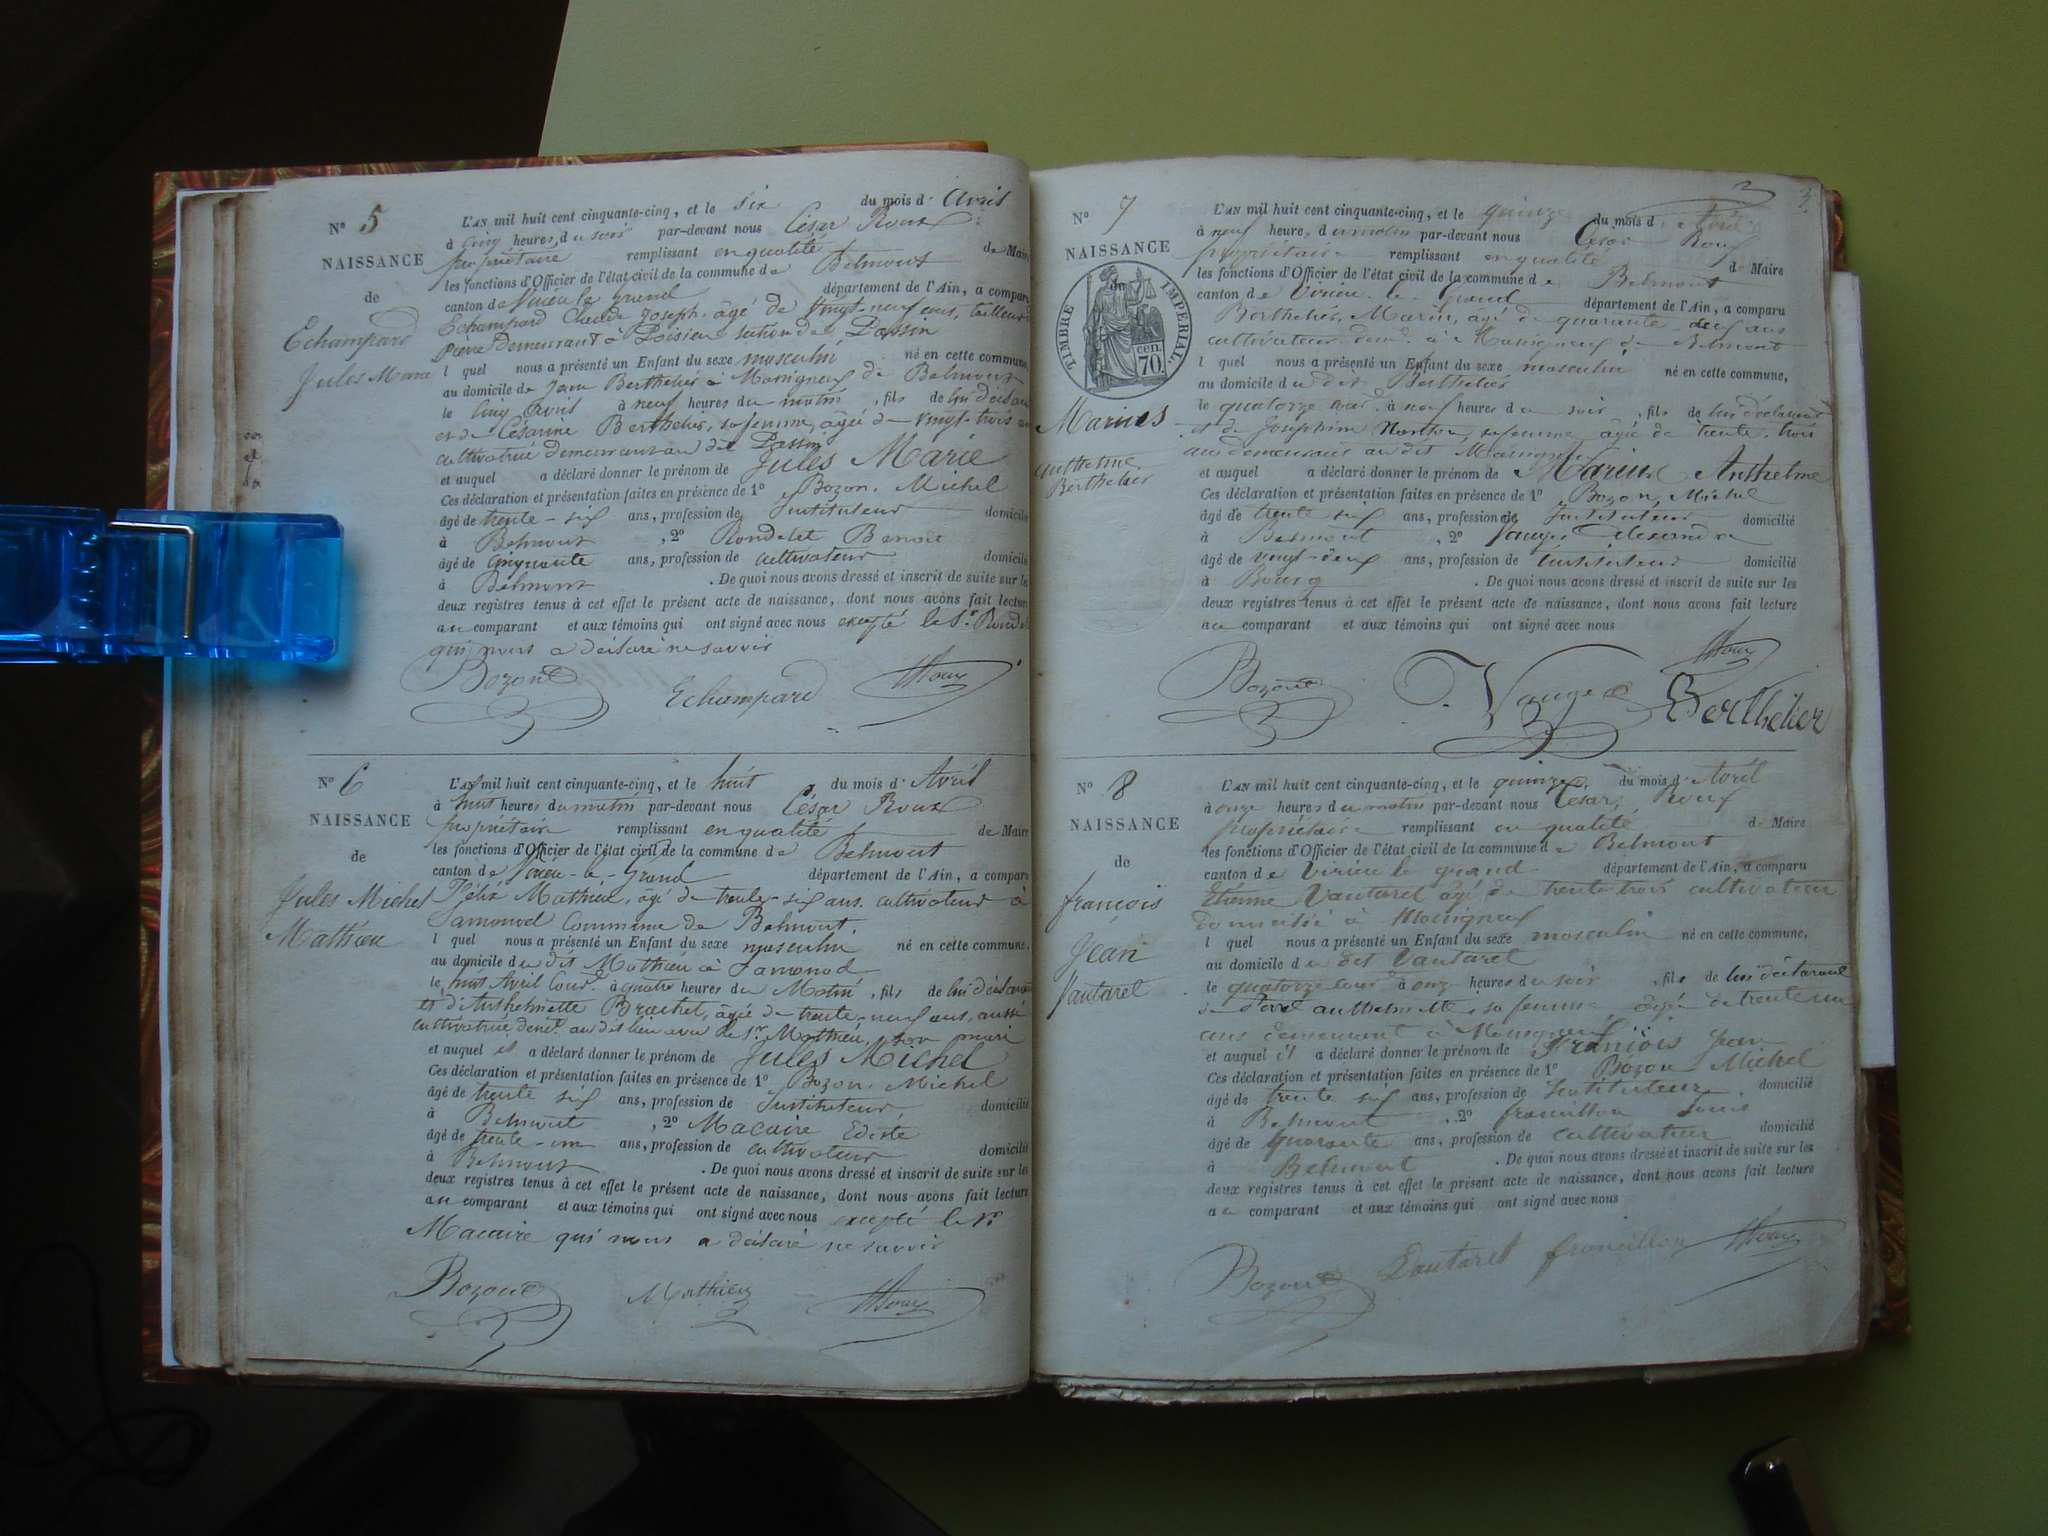 N° 5
NAISSANCE
de
Echampard
Jules Marie
L'AN mil huit cent cinquante-cinq, et le six du mois d' Avril
à cinq heures du soir par-devant nous César Roux
propriétaire remplissant en qualité de Maire
les fonctions d'Officier de l'état civil de la commune de Belmont
canton de Virieu le grand département de l'Ain, a comparu
Echampard Claude Joseph, âgé de vingt-neuf ans, tailleur de
pierre demeurant à Poisieu section de Passin
l quel nous a présenté un Enfant du sexe masculin né en cette commune,
au domicile de Jean Berthelier à Massigneux de Belmont
le cinq Avril à neuf heures du matin, fils de lui déclarant
et de Césarine Berthelier, sa femme, âgée de vingt-trois ans
cultivatrice demeurant au dit Passin
et auquel a déclaré donner le prénom de Jules Marie
Ces déclaration et présentation faites en présence de 1° Bozon, Michel
âgé de trente-six ans, profession de Instituteur domicilié
à Belmont, 2° Rondelet Benoit
âgé de cinquante ans, profession de cultivateur domicilié
à Belmont. De quoi nous avons dressé et inscrit de suite sur les
deux registres tenus à cet effet le présent acte de naissance, dont nous avons fait lecture
au comparant et aux témoins qui ont signé avec nous excepté le Sr. Rondelet
qui nous a déclaré ne savoir
Bozon Echampard Roux
N° 6
NAISSANCE
de
Jules Michel
Mathieu
L'AN mil huit cent cinquante-cinq, et le huit du mois d' Avril
à huit heures du matin par-devant nous César Roux
propriétaire remplissant en qualité de Maire
les fonctions d'Officier de l'état civil de la commune de Belmont
canton de Virieu-le-Grand département de l'Ain, a comparu
Félix Mathieu, âgé de trente-six ans, cultivateur à
Samonod Commune de Belmont.
l quel nous a présenté un Enfant du sexe masculin né en cette commune,
au domicile du dit Mathieu à Samonod
le huit Avril Cour. à quatre heures du Matin, fils de lui déclarant
et d'Anthelmette Brachet, âgée de trente-neuf ans, aussi
cultivatrice demt. au dit lieu avec le Sr. Mathieu, son mari
et auquel il a déclaré donner le prénom de Jules Michel
Ces déclaration et présentation faites en présence de 1° Bozon, Michel
âgé de trente six ans, profession de Instituteur domicilié
à Belmont, 2° Macaire
âgé de trente-un ans, profession de cultivateur domicilié
à Belmont. De quoi nous avons dressé et inscrit de suite sur les
deux registres tenus à cet effet le présent acte de naissance, dont nous avons fait lecture
au comparant et aux témoins qui ont signé avec nous excepté le Sr
Macaire qui nous a déclaré ne savoir
Bozon Mathieu Roux
3
N° 7
NAISSANCE
de
TIMBRE IMPERIAL
70 cen.
Marius
Anthelme
Berthelier
L'AN mil huit cent cinquante-cinq, et le quinze du mois d' Avril
à neuf heures du matin par-devant nous César Roux
propriétaire remplissant en qualité de Maire
les fonctions d'Officier de l'état civil de la commune de Belmont
canton de Virieu-le-grand département de l'Ain, a comparu
Berthelier, Marin, âgé de quarante-deux ans
cultivateur demt. à Massigneux de Belmont
l quel nous a présenté un Enfant du sexe masculin né en cette commune,
au domicile du dit Berthelier
le quatorze cour. à neuf heures du soir, fils de lui déclarant
et de Joséphine, sa femme, âgée de trente-trois
ans demeurant au dit Massigneux
et auquel a déclaré donner le prénom de Marius Anthelme
Ces déclaration et présentation faites en présence de 1° Bozon, Michel
âgé de trente six ans, profession de Instituteur domicilié
à Belmont, 2° Vauges Alexandre
âgé de vingt-deux ans, profession de Instituteur domicilié
à Bourg. De quoi nous avons dressé et inscrit de suite sur les
deux registres tenus à cet effet le présent acte de naissance, dont nous avons fait lecture
au comparant et aux témoins qui ont signé avec nous
Bozon Vauges Berthelier Roux
N° 8
NAISSANCE
de
françois
Jean
Vautaret
L'AN mil huit cent cinquante-cinq, et le quinze du mois d' Avril
à onze heures du matin par-devant nous César Roux
propriétaire remplissant en qualité de Maire
les fonctions d'Officier de l'état civil de la commune de Belmont
canton de Virieu le grand département de l'Ain, a comparu
Etienne Vautaret âgé de trente trois cultivateur
domicilié à Massigneux
l quel nous a présenté un Enfant du sexe masculin né en cette commune,
au domicile du dit Vautaret
le quatorze cour. à onze heures du soir, fils de lui déclarant
anthelmette, sa femme, âgée de trente un
ans demeurant à Massigneux
et auquel il a déclaré donner le prénom de François Jean
Ces déclaration et présentation faites en présence de 1° Bozon Michel
âgé de trente six ans, profession de Instituteur domicilié
à Belmont, 2° francillon Louis
âgé de quarante ans, profession de cultivateur domicilié
à Belmont. De quoi nous avons dressé et inscrit de suite sur les
deux registres tenus à cet effet le présent acte de naissance, dont nous avons fait lecture
au comparant et aux témoins qui ont signé avec nous
Bozon Vautaret francillon Roux